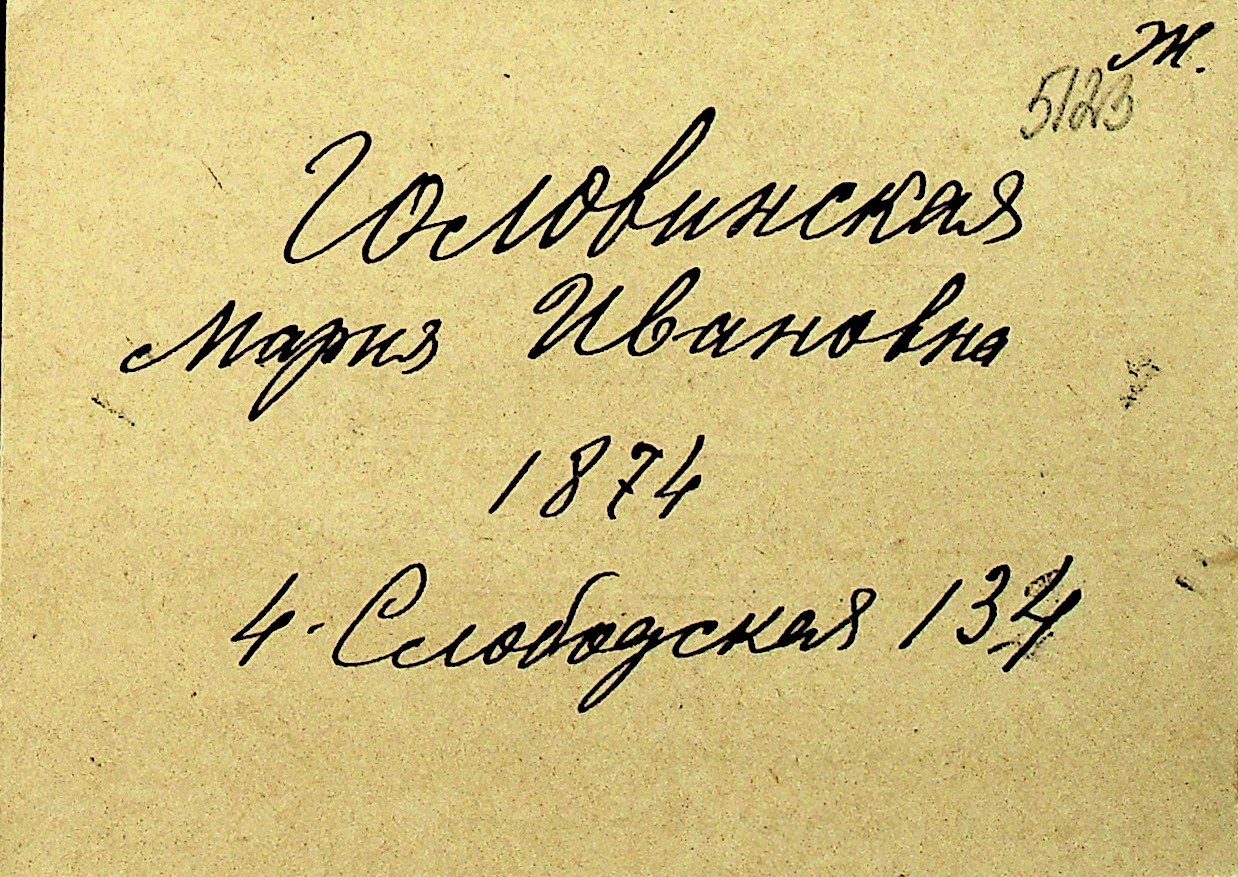 Ж.
5123
Головинская
Мария Ивановна
1874
4-Слободская 134